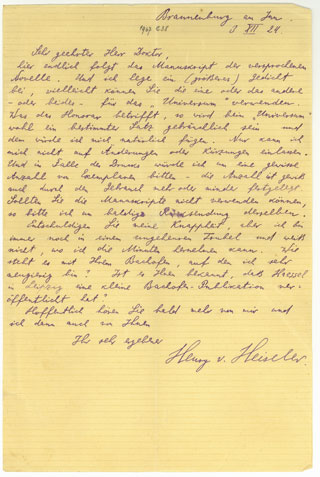 Brannenburg am Inn.
3 XII 24.
Sehr geehrter Herr Doktor
hier endlich folgt das Manuskript der versprochenen
Novelle. Und ich lege ein (größeres) Gedicht
bei, vielleicht können Sie die eine oder das andere
- oder beides - für das "Universum" verwenden.
Was das Honorar betrifft, so wird beim "Universum"
wohl ein bestimmter Satz gebräuchlich sein und
dem würde ich mich natürlich fügen. Nur kann ich
mich nicht auf Änderungen oder Kürzungen einlassen.
Und im Falle des Drucks würde ich um eine gewisse
Anzahl von Exemplaren bitten - die Anzahl ist gewiß
auch durch den Gebrauch mehr oder minder festgelegt.
Sollten Sie die Manuskripte nicht verwenden können,
so bitte ich um baldige Rücksendung derselben.
Entschuldigen Sie meine Knappheit, aber ich bin
immer noch in einem ungeheuren Trubel und weiß
nicht, wo ich die Minuten hernehmen kann. Wie
steht es mit Ihrem Bachofen, auf den ich sehr
neugierig bin? Ist es Ihnen bekannt, daß
in Leipzig eine kleine Bachofen-Publikation ver-
öffentlicht hat?
Hoffentlich hören Sie bald mehr von mir und
ich dann auch von Ihnen
Ihr sehr ergebener
Henry v. Heiseler.